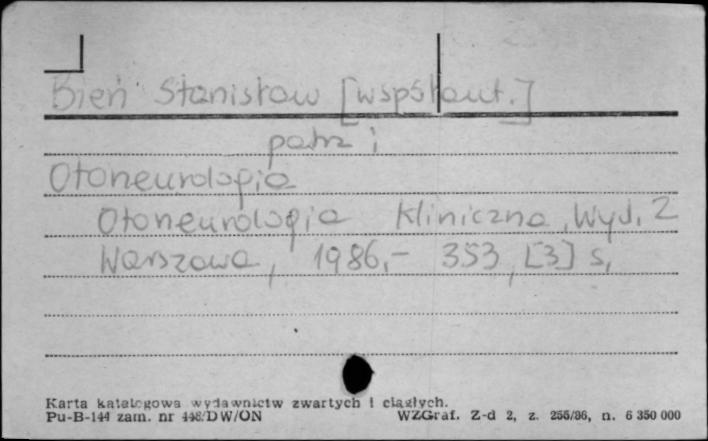 Bień Stanisław [współaut.]
patrz i
Otoneurologia
Otoneurologia kliniczna, Wyd. 2
Warszawa, 1986,- 353, [3] s,
Karta katalogowa wydawnictw zwartych i ciągłych.
Pu-B-144 zam. nr 448/DW/ON WZGraf. Z-d 2, z. 255/86, n. 6 350 000